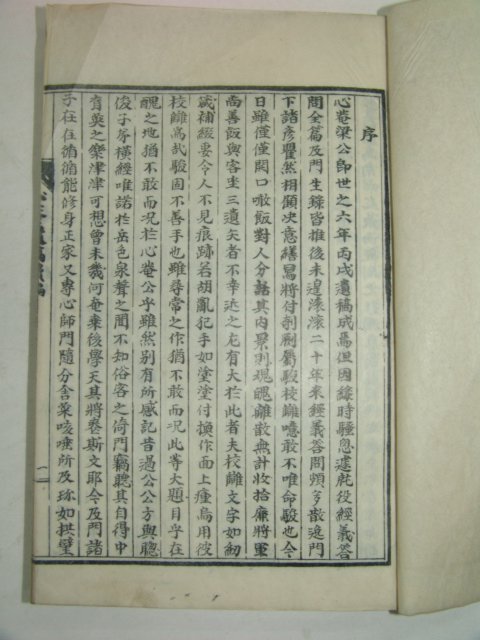 序
心菴梁公卽世之六年丙戌遺稿成焉但因錄時騷怱遽就役經義答
問全篇及門生錄皆推後未遑滚滚二十年來經義答問頗多散逸門
下諸彦瞿然相顧决意繕冩將付剞劂屬駿校讎噫敢不唯命駿也今
日雖僅僅開口喫飯對人分話其內景則魂魄離散無計收拾廉將軍
尚善飯與客坐三遺矢者不幸近之尤有大於此者夫校讎文字如紉
箴補綴要令人不見痕跡若胡亂犯手如塗塗付損作面上瘇烏用彼
校讎爲哉駿固不善手也雖尋常之作猶不敢而况此等大題目乎在
醜之地猶不敢而况於心菴公乎雖然别有所感記昔過公公方與聰
俊子弟橫經唯諾於岳色泉聲之間不知俗客之倚門竊聽其自得中
育英之樂津津可想曾未幾何奄棄後學天其將喪斯文耶今及門諸
子在在循循能修身正家又專心師門隨分舍菜咳唾所及珎如拱璧